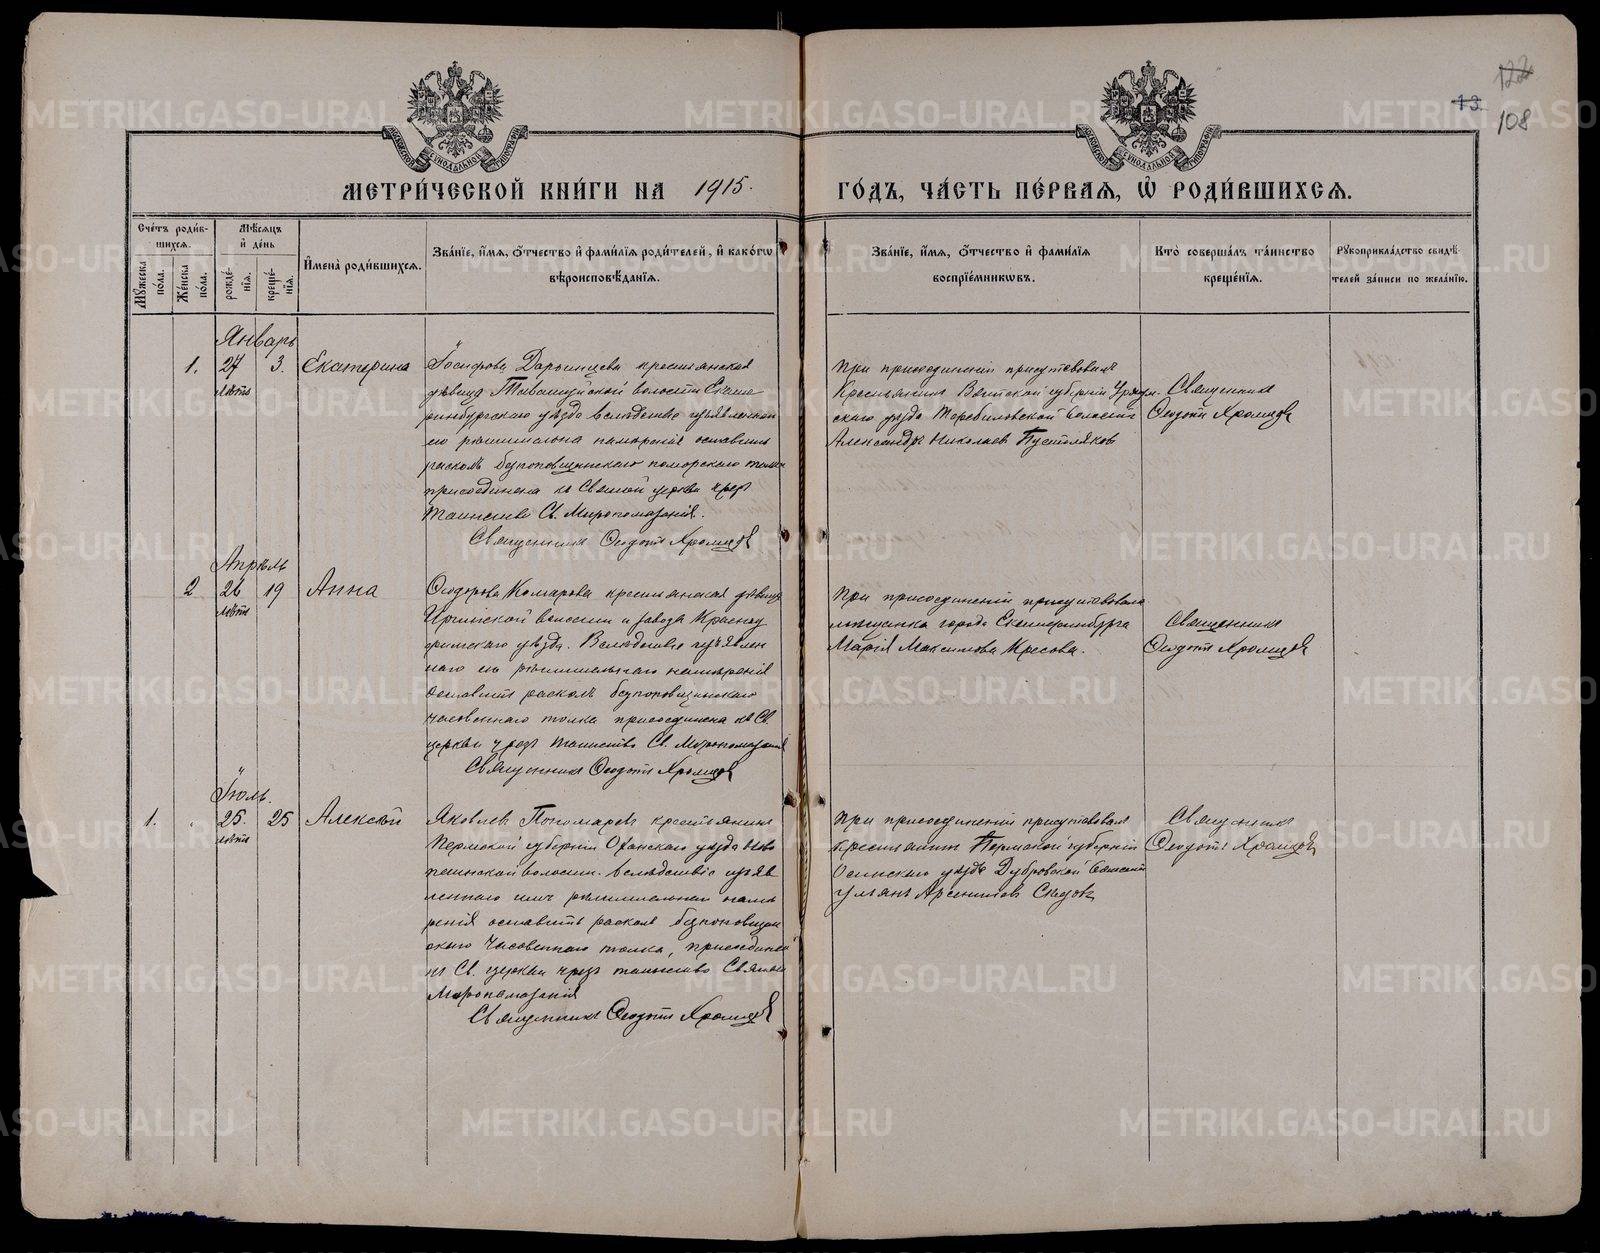 122
13.
108
МОСКОВСКОЙ СѴНОДАЛЬНОЙ ТИПОГРАФІИ
МОСКОВСКОЙ СѴНОДАЛЬНОЙ ТИПОГРАФІИ
МЕТРИ́ЧЕСКОЙ КНИ́ГИ НА 1915.
ГО́ДЪ, ЧА́СТЬ ПЕ́РВАЯ, Ѡ РОДИ́ВШИХСЯ.
Сче́тъ роди́вшихся.
Му́жеска по́ла.
Же́нска по́ла.
Мѣ́сяцъ и де́нь
рожде́нія.
креще́нія.
Имена̀ роди́вшихся.
Зва́ніе, и́мя, о́тчество и фами́лія роди́телей, и како́гѡ
вѣроисповѣ́данія.
Зва́ніе, и́мя, о́тчество и фами́лія
воспріе́мникѡвъ.
Кто̀ соверша́лъ та́инство
креще́нія.
Рукоприкла́дство свидѣ́-
телей за́писи по жела́нію.
Январь
1. 27 лѣтъ 3. Екатерина
Іосифова Дарьинцева крестьянская
дѣвица Таватуйской волости Екате
ринбургскаго уѣзда вслѣдствіе изъявленнаго
ею рѣшительна намѣренія оставить
расколъ безпоповщинскаго поморскаго толка
присоединена къ Святой церкви чрезъ
Таинство Св. Миропомазанія.
Священникъ Ѳеодотъ Хромцовъ
При присоединеніи присутствовалъ
Крестьянинъ Вятской губерніи Уржум
скаго уѣзда Теребиловской волости
Александръ Николаев Пустоляков
Священникъ
Ѳеодотъ Хромцовъ
Апрѣль
2 26 лѣтъ 19 Анна
Ѳеодорова Комарова крестьянская дѣвица
Иргинской волости и завода Красноу
фимскаго уѣзда. Вслѣдствіе изъявлен
наго ею рѣшительнаго намѣренія
оставить расколъ безпоповщинскаго
часовеннаго толка присоединена къ Св.
церкви чрезъ таинство Св. Миропомазанія
Священникъ Ѳеодотъ Хромцовъ
При присоединеніи присутствовала
мѣщанка города Екатеринбурга
Марія Максимова Кресова.
Священникъ
Ѳеодотъ Хромцовъ
Іюль.
1. 25. лѣтъ 25 Алексѣй
Яковлев Пономарев крестьянинъ
Пермской губерніи Оханскаго уѣзда Ново
паинской волости. Вслѣдствіе изъяв
леннаго имъ рѣшительнаго намѣ
ренія оставить расколъ безпоповщин
скаго Часовеннаго толка, присоединенъ
къ Св. церкви чрезъ таинство Святаго
Миропомазанія
Священникъ Ѳеодотъ Хромцовъ
При присоединеніи присутствовалъ
крестьянинъ Пермской губерніи
Осинскаго уѣзда Дубровской волости
Ульянъ Арсентьевъ
Священникъ
Ѳеодотъ Хромцовъ
METRIKI.GASO-URAL.RU